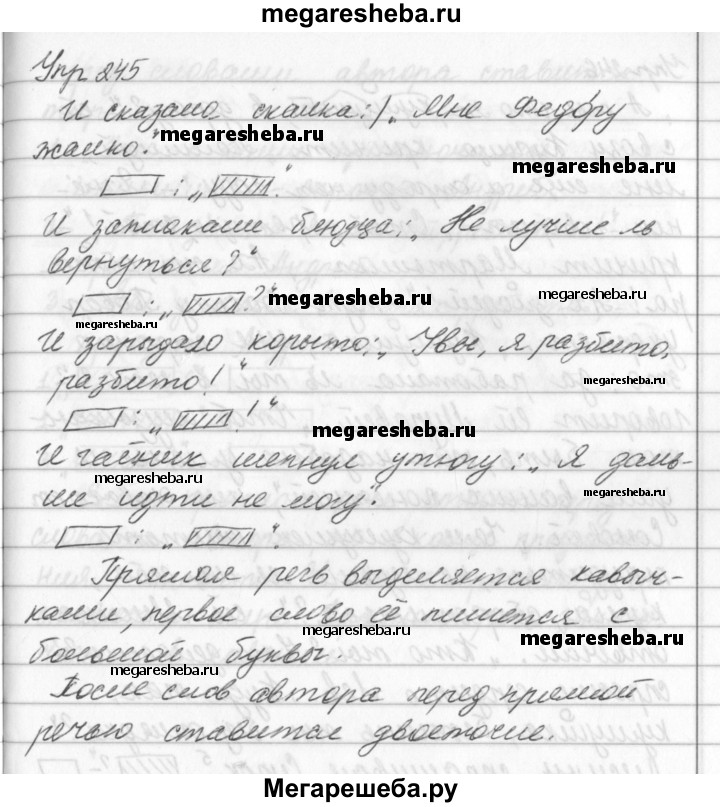 megaresheba.ru
Упр 245
И сказала скалка: „Мне Федору
жалко."
megaresheba.ru
megaresheba.ru
: „ ".
И заплакали блюдца: „Не лучше ль
вернуться?"
: „ ?"
megaresheba.ru
megaresheba.ru
megaresheba.ru
И зарыдало корыто: „Увы, я разбито,
разбито!"
megaresheba.ru
: „ !"
megaresheba.ru
megaresheba.ru
И чайник шепнул утюгу: „Я даль-
ше идти не могу".
megaresheba.ru
megaresheba.ru
: „ ".
Прямая речь выделяется кавыч-
ками, первое слово её пишется с
большой буквы.
megaresheba.ru
megaresheba.ru
megaresheba.ru
После слов автора перед прямой
речью ставится двоеточие.
Мегарешеба.ру